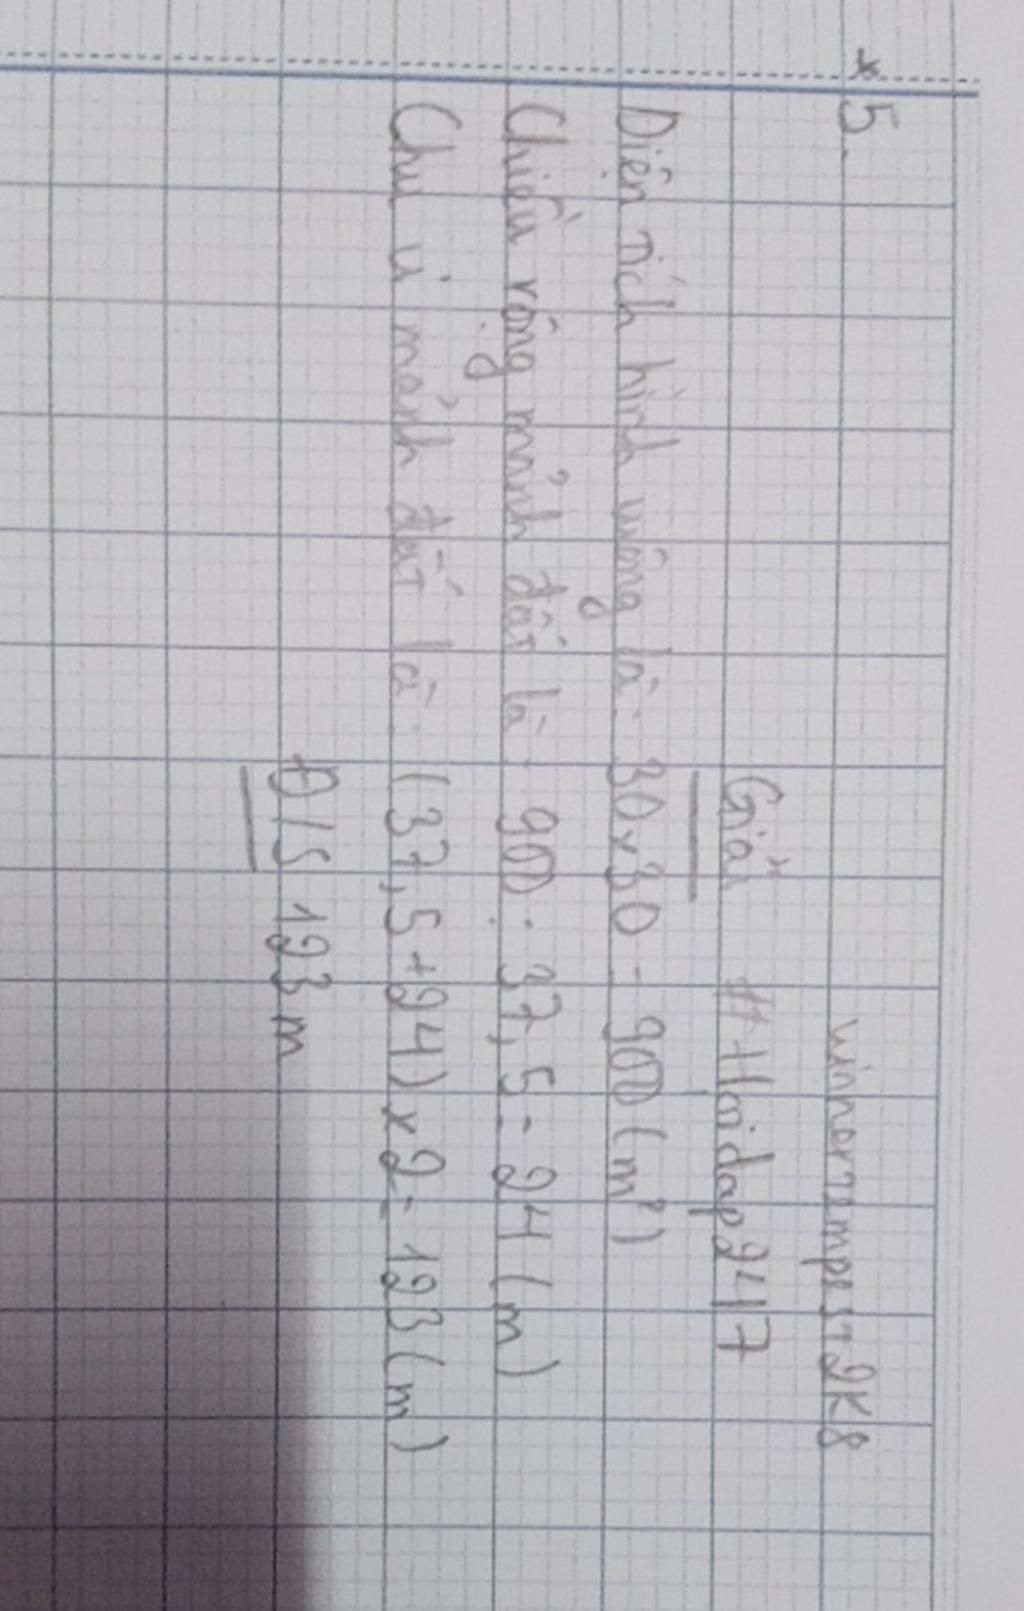 * 5.
winnertempest2k8
Giải #Hoidap247
Diện tích hình vuông là: 30x30 = 900 (m²)
Chiều rộng mảnh đất là: 900 : 37,5 = 24 (m)
Chu vi mảnh đất là: (37,5+24) x 2 = 123 (m)
Đ/S 123 m